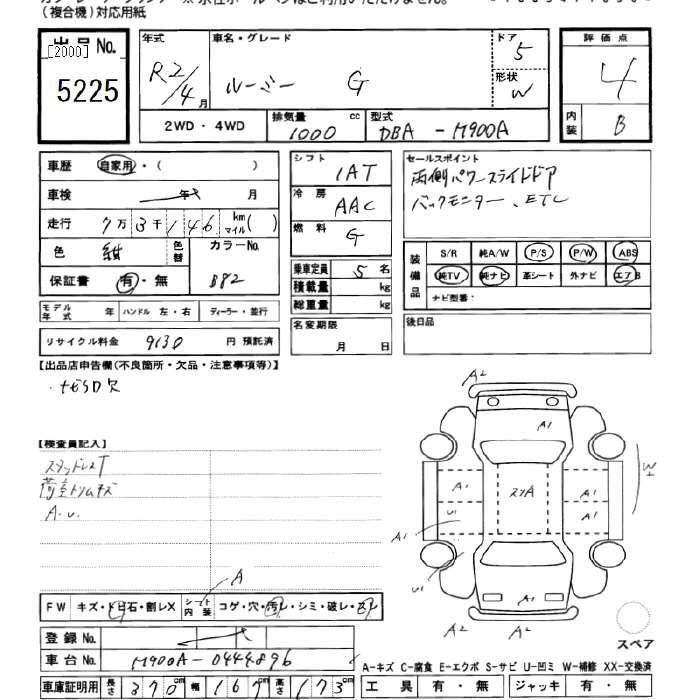 (複合機)対応用紙
出品 No.
[2000]
5225
年式 車名・グレード ドア 5
R2/4 月 ルーミー G 形状 W
2WD・4WD 排気量 1000 cc 型式 DBA - M900A
評価点 4
内装 B
車歴 自家用・( )
車検 年 月
走行 7万3千146 km マイル( )
色 紺 色替 カラーNo.
保証書 有・無 B82
モデル年式 年 ハンドル 左・右 ディーラー・並行
リサイクル料金 9130 円 預託済
シフト IAT
冷房 AAC
燃料 G
乗車定員 5 名
積載量 kg
総重量 kg
名変期限 月 日
セールスポイント
両側パワースライドドア
バックモニター、ETC
装備品 S/R 純A/W P/S P/W ABS
純TV 純ナビ 革シート 外ナビ エアB
ナビ型番:
後日品
【出品店申告欄(不良箇所・欠品・注意事項等)】
・ナビSD欠
【検査員記入】
スタッドレスT
荷室トリムキズ
A.U.
A
FW キズ・トビ石・割レX シート内装 コゲ・穴・汚レ・シミ・破レ・スレ
登録 No.
車台 No. M900A-0444896
車庫証明用 長さ 370cm 幅 167cm 高さ 173cm
A2
A1
A1 スリA A1
U1 A1
A1
U1
A1
A2 A2
W1
スペア
A-キズ C-腐食 E-エクボ S-サビ U-凹ミ W-補修 XX-交換済
工具 有・無 ジャッキ 有・無